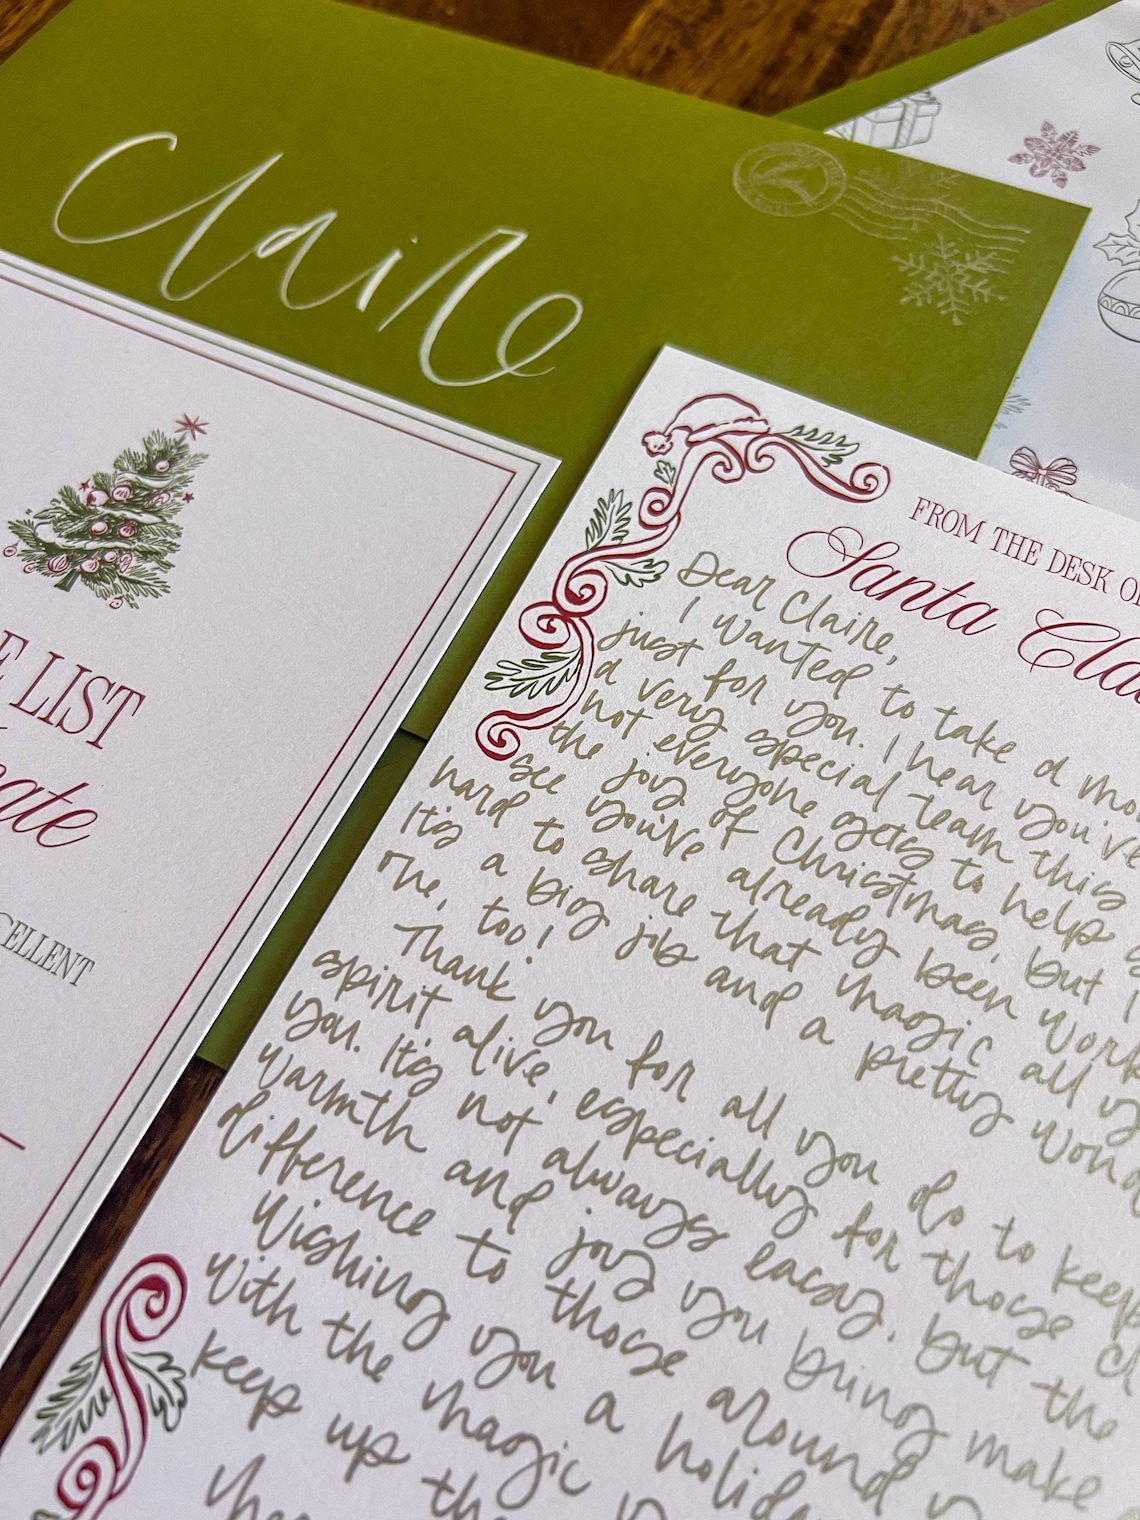 Claire
E LIST
ate
CELLENT
FROM THE DESK O
Santa Cla
Dear Claire,
I wanted to take a mo
just for you. I hear you've
a very special team this
not everyone gets to help s
the joy of Christmas, but I
see you've already been work
hard to share that magic all y
It's a big job and a pretty wond
one, too!
Thank you for all you do to keep
spirit alive, especially for those cl
you. It's not always easy, but the
warmth and joy you bring make
difference to those around
Wishing you a holida
with the magic y
keep up th